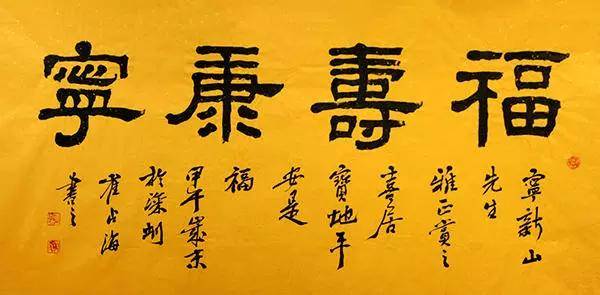 福壽康寧
寧新山
先生
雅正賞之
喜居
寶地平
安是
福
甲午歲末
於深圳
崔占海
書之